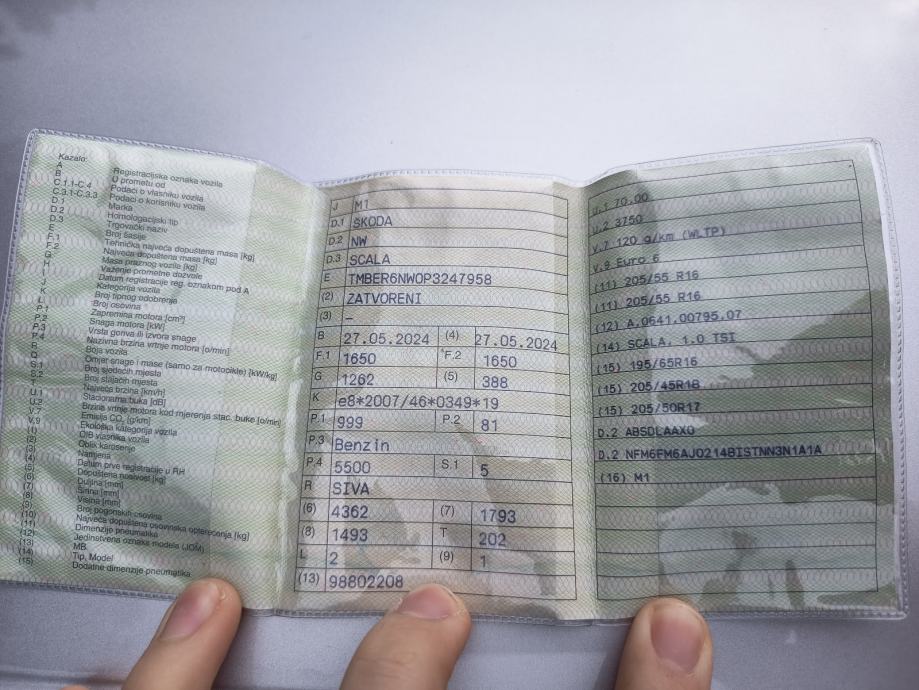 Kazalo:
A Registracijska oznaka vozila
B U prometu od
C.1.1-C.4 Podaci o vlasniku vozila
C.3.1-C.3.3 Podaci o korisniku vozila
D.1 Marka
D.2 Homologacijski tip
D.3 Trgovački naziv
E Broj šasije
F.1 Tehnička najveća dopuštena masa [kg]
F.2 Najveća dopuštena masa [kg]
G Masa praznog vozila [kg]
H Važenje prometne dozvole
I Datum registracije reg. oznakom pod A
J Kategorija vozila
K Broj tipnog odobrenja
L Broj osovina
P.1 Zapremina motora [cm³]
P.2 Snaga motora [kW]
P.3 Vrsta goriva ili izvora snage
P.4 Nazivna brzina vrtnje motora [o/min]
R Boja vozila
Q Omjer snage i mase (samo za motocikle) [kW/kg]
S.1 Broj sjedećih mjesta
S.2 Broj stajaćih mjesta
T Najveća brzina [km/h]
U.1 Stacionarna buka [dB]
U.2 Brzina vrtnje motora kod mjerenja stac. buke [o/min]
V.7 Emisija CO₂ [g/km]
V.9 Ekološka kategorija vozila
(1) OIB vlasnika vozila
(2) Oblik karoserije
(3) Namjena
(4) Datum prve registracije u RH
(5) Dopuštena nosivost [kg]
(6) Duljina [mm]
(7) Širina [mm]
(8) Visina [mm]
(9) Broj pogonskih osovina
(10) Najveća dopuštena osovinska opterećenja [kg]
(11) Dimenzije pneumatika
(12) Jedinstvena oznaka modela (JOM)
(13) MB
(14) Tip, Model
(15) Dodatne dimenzije pneumatika
J M1
D.1 ŠKODA
D.2 NW
D.3 SCALA
E TMBER6NW0P3247958
(2) ZATVORENI
(3) –
B 27.05.2024 (4) 27.05.2024
F.1 1650 F.2 1650
G 1262 (5) 388
K e8*2007/46*0349*19
P.1 999 P.2 81
P.3 Benzin
P.4 5500 S.1 5
R SIVA
(6) 4362 (7) 1793
(8) 1493 T 202
L 2 (9) 1
(13) 98802208
U.1 70.00
U.2 3750
V.7 120 g/km (WLTP)
V.9 Euro 6
(11) 205/55 R16
(11) 205/55 R16
(12) A.0641.00795.07
(14) SCALA, 1.0 TSI
(15) 195/65R16
(15) 205/45R18
(15) 205/50R17
D.2 ABSDLAAX0
D.2 NFM6FM6AJ0214BISTNN3N1A1A
(16) M1